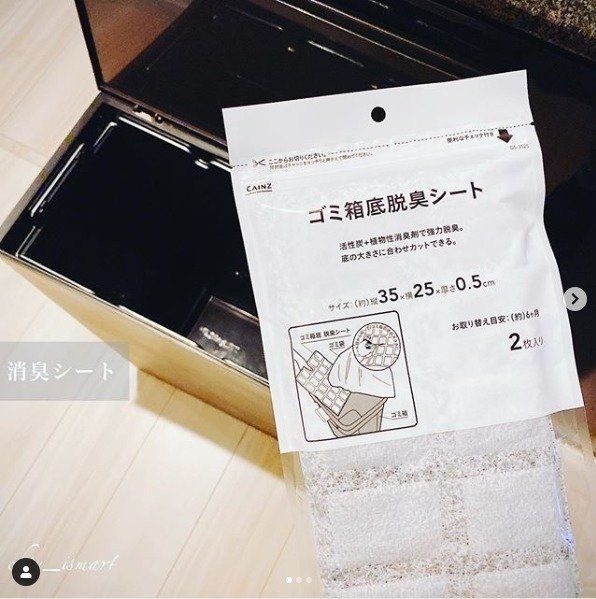 ここからお切りください。
便利なチャック付き
CAINZ
ゴミ箱底脱臭シート
活性炭+植物性消臭剤で強力脱臭。
底の大きさに合わせカットできる。
サイズ:(約)縦35×横25×厚さ0.5cm
お取り替え目安:(約)6ヶ月
2枚入り
ゴミ箱底 脱臭シート
ゴミ袋
ゴミ箱
消臭シート